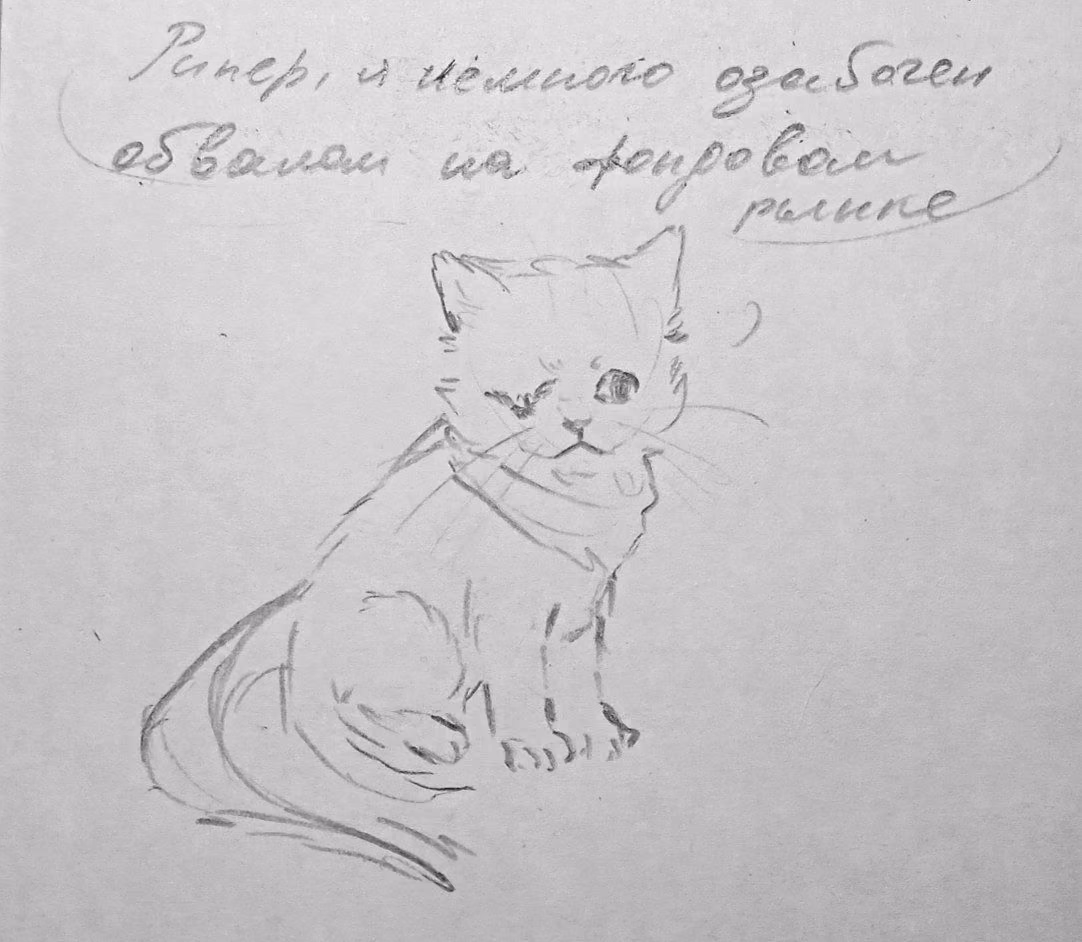 Рипер, я немного озабочен
обвалом на фондовом
рынке